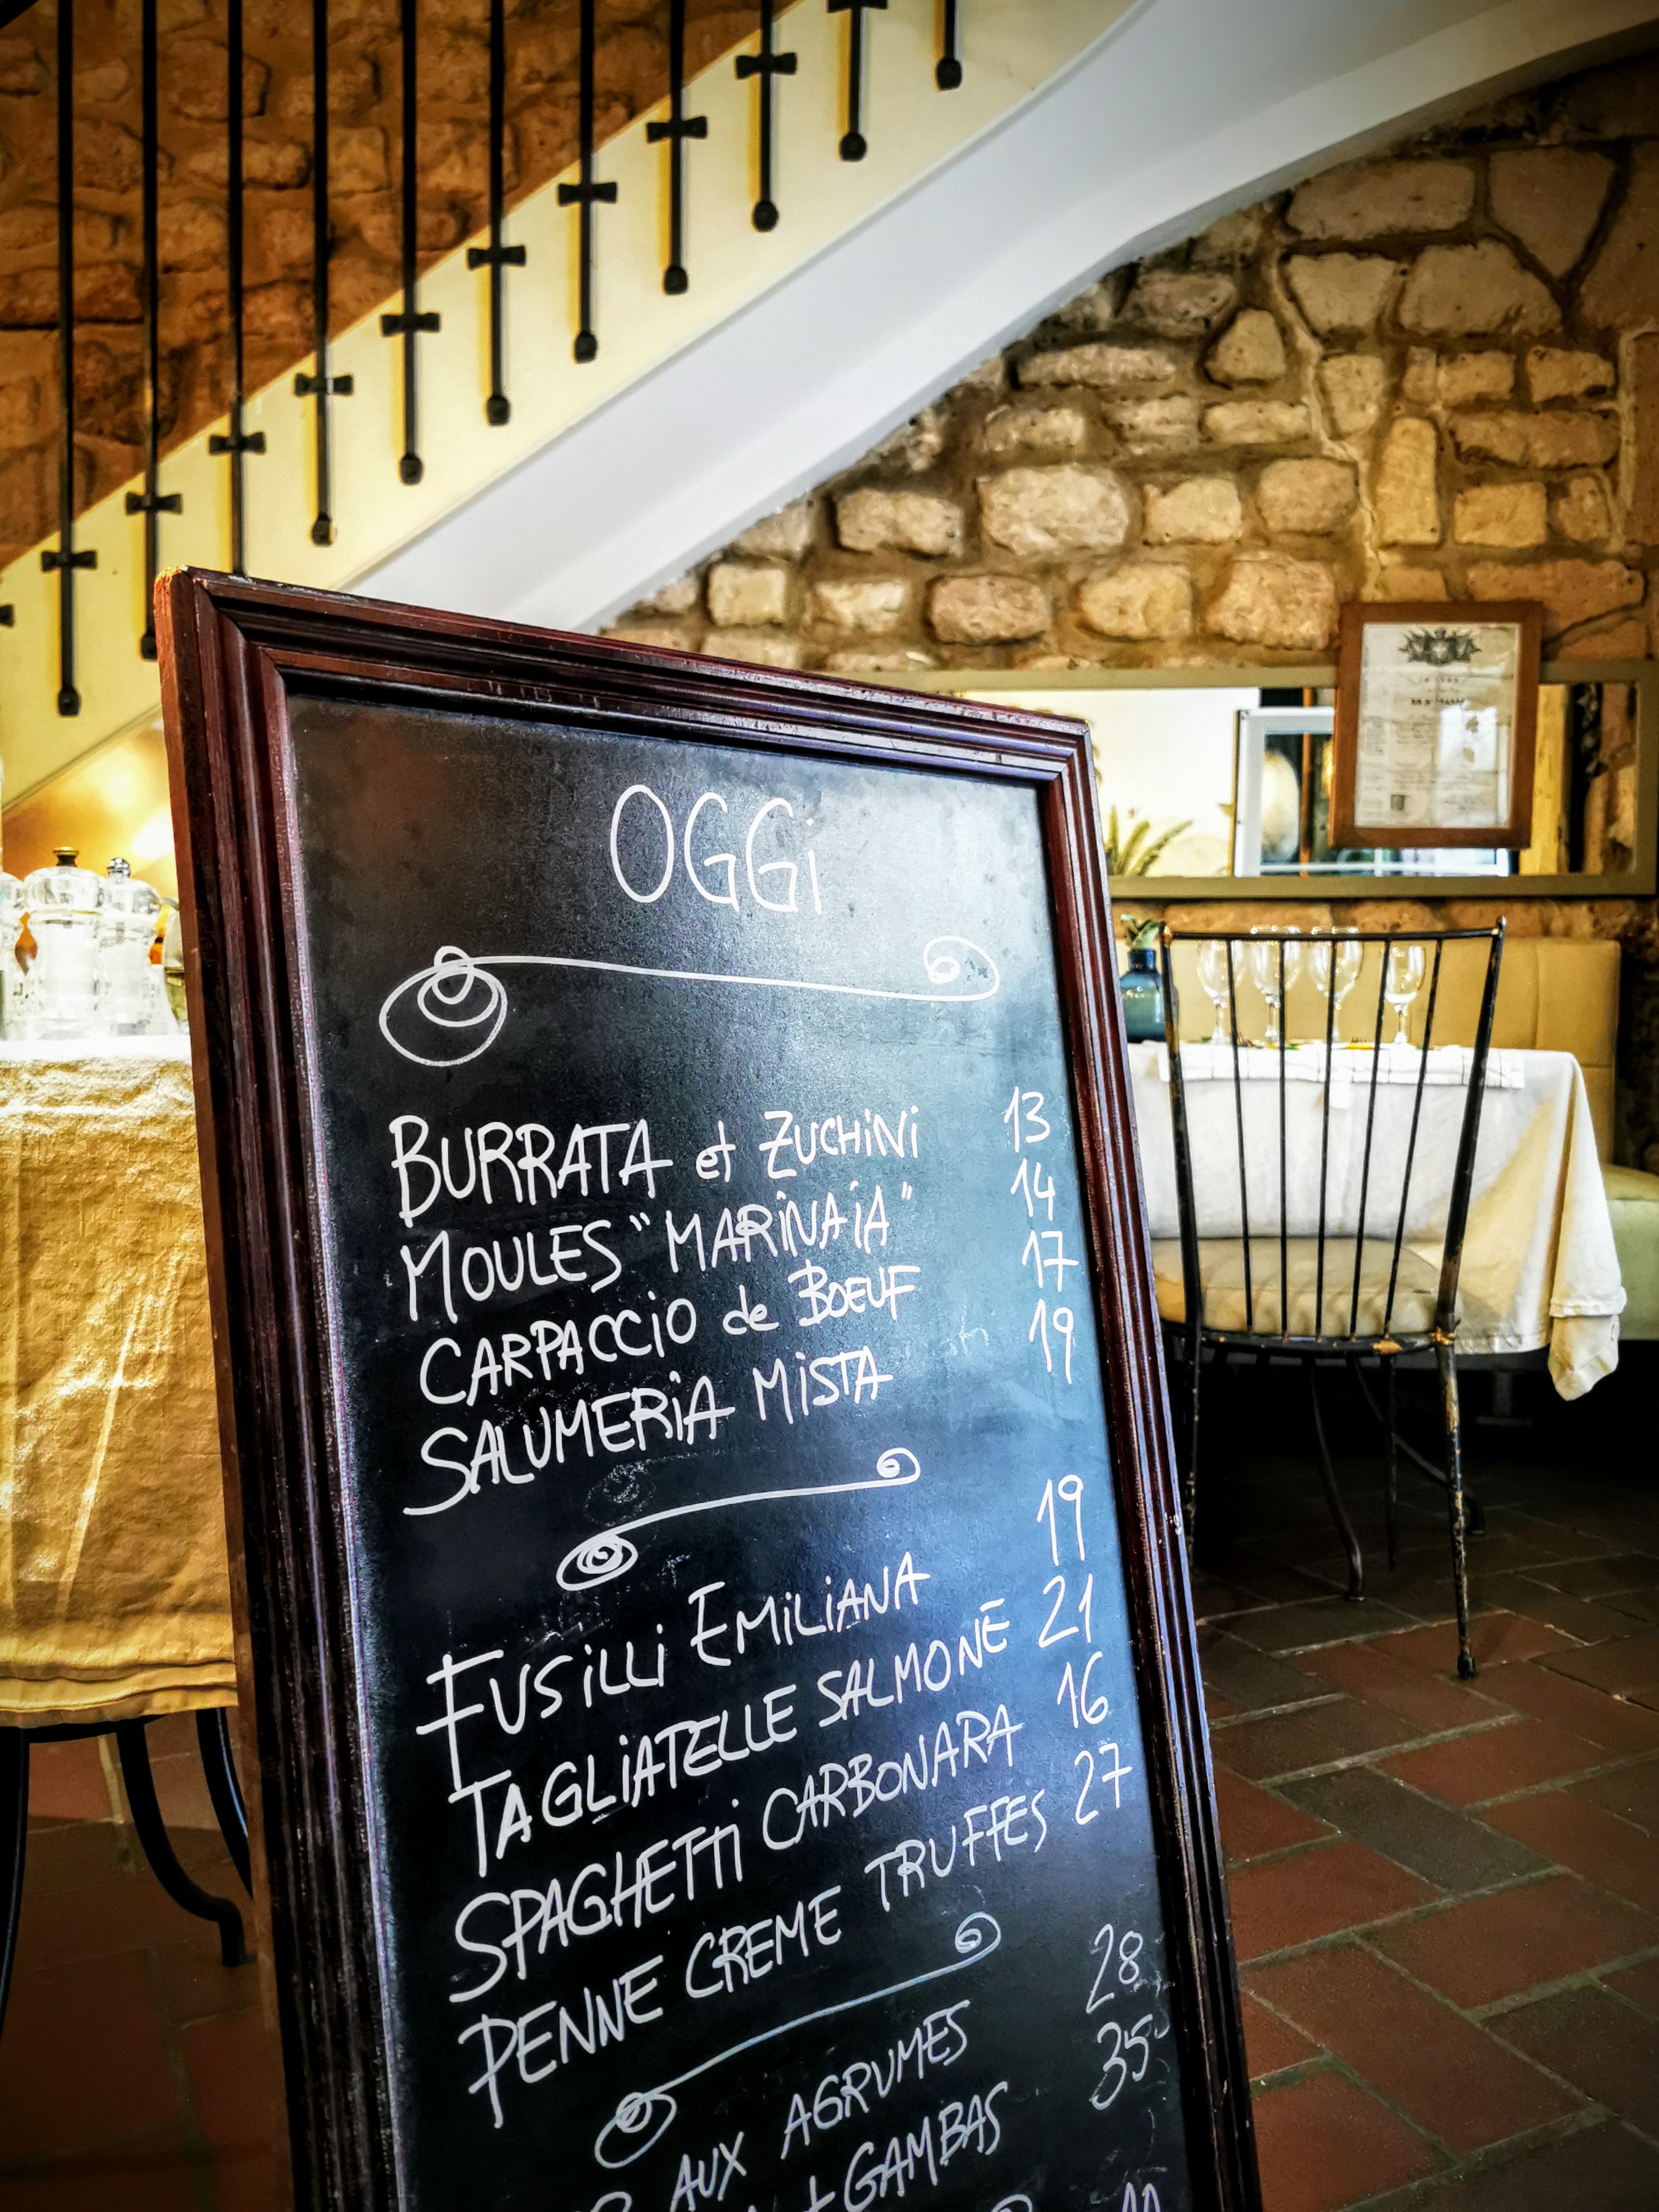 OGGi
BURRATA et ZUCHiNi 13
MOULES "MARiNAiA" 14
CARPACCiO de BOEUF 17
SALUMERiA MiSTA 19
FUSiLLi EMiLiANA 19
TAGLiATELLE SALMONE 21
SPAGHETTi CARBONARA 16
PENNE CREME TRUFFES 27
AUX AGRUMES 28
+ GAMBAS 35